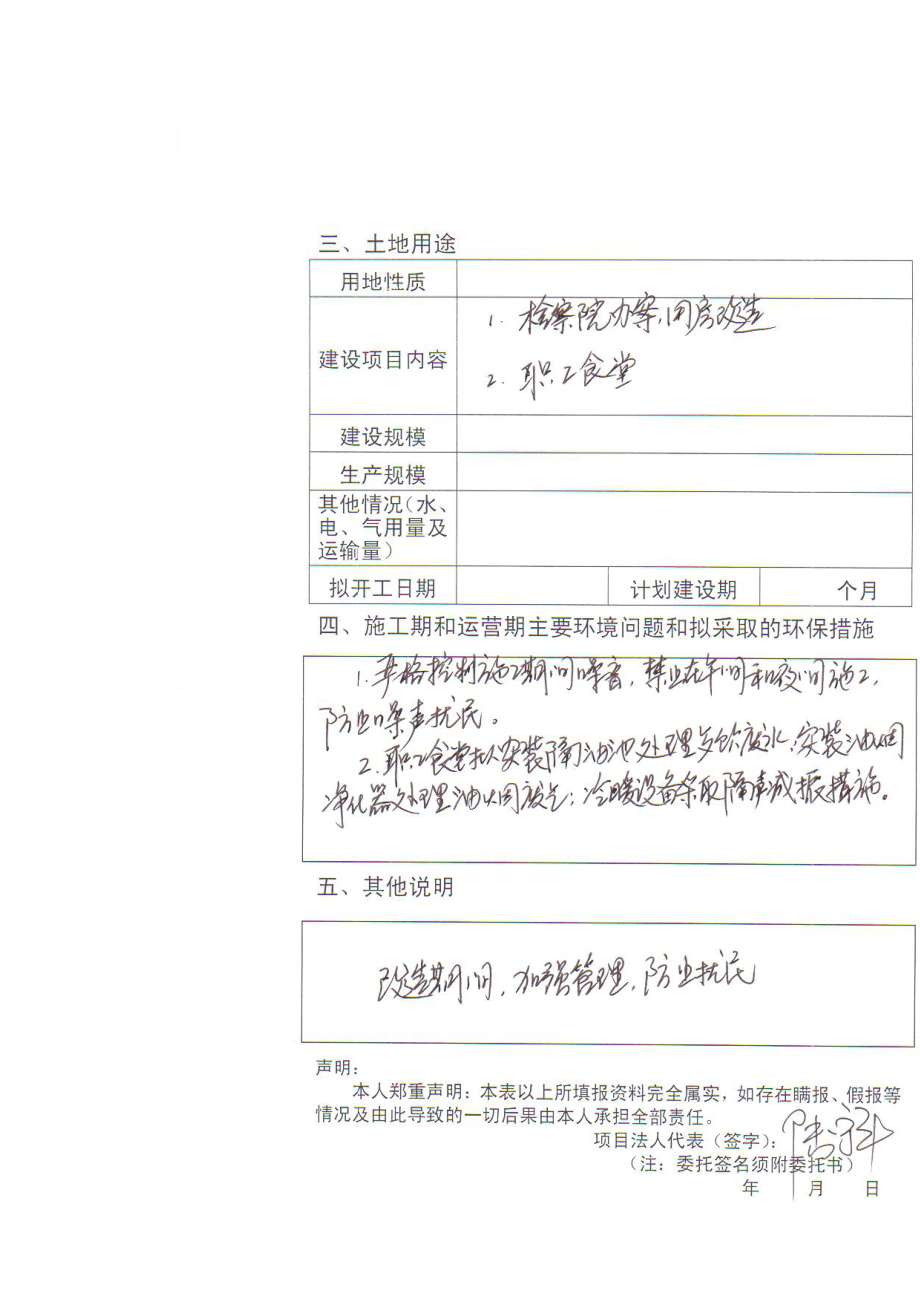 三、土地用途
用地性质
建设项目内容
1. 检察院办案用房改造
2. 职工食堂
建设规模
生产规模
其他情况(水、
电、气用量及
运输量)
拟开工日期 计划建设期 个月
四、施工期和运营期主要环境问题和拟采取的环保措施
1. 严格控制施工期间噪音,禁止在午间和夜间施工,
防止噪声扰民。
2. 职工食堂拟安装隔油池处理餐饮废水;安装油烟
净化器处理油烟废气;冷暖设备采取隔声减振措施。
五、其他说明
改造期间,加强管理,防止扰民
声明:
本人郑重声明:本表以上所填报资料完全属实,如存在瞒报、假报等
情况及由此导致的一切后果由本人承担全部责任。
项目法人代表(签字):
(注:委托签名须附委托书)
年 月 日